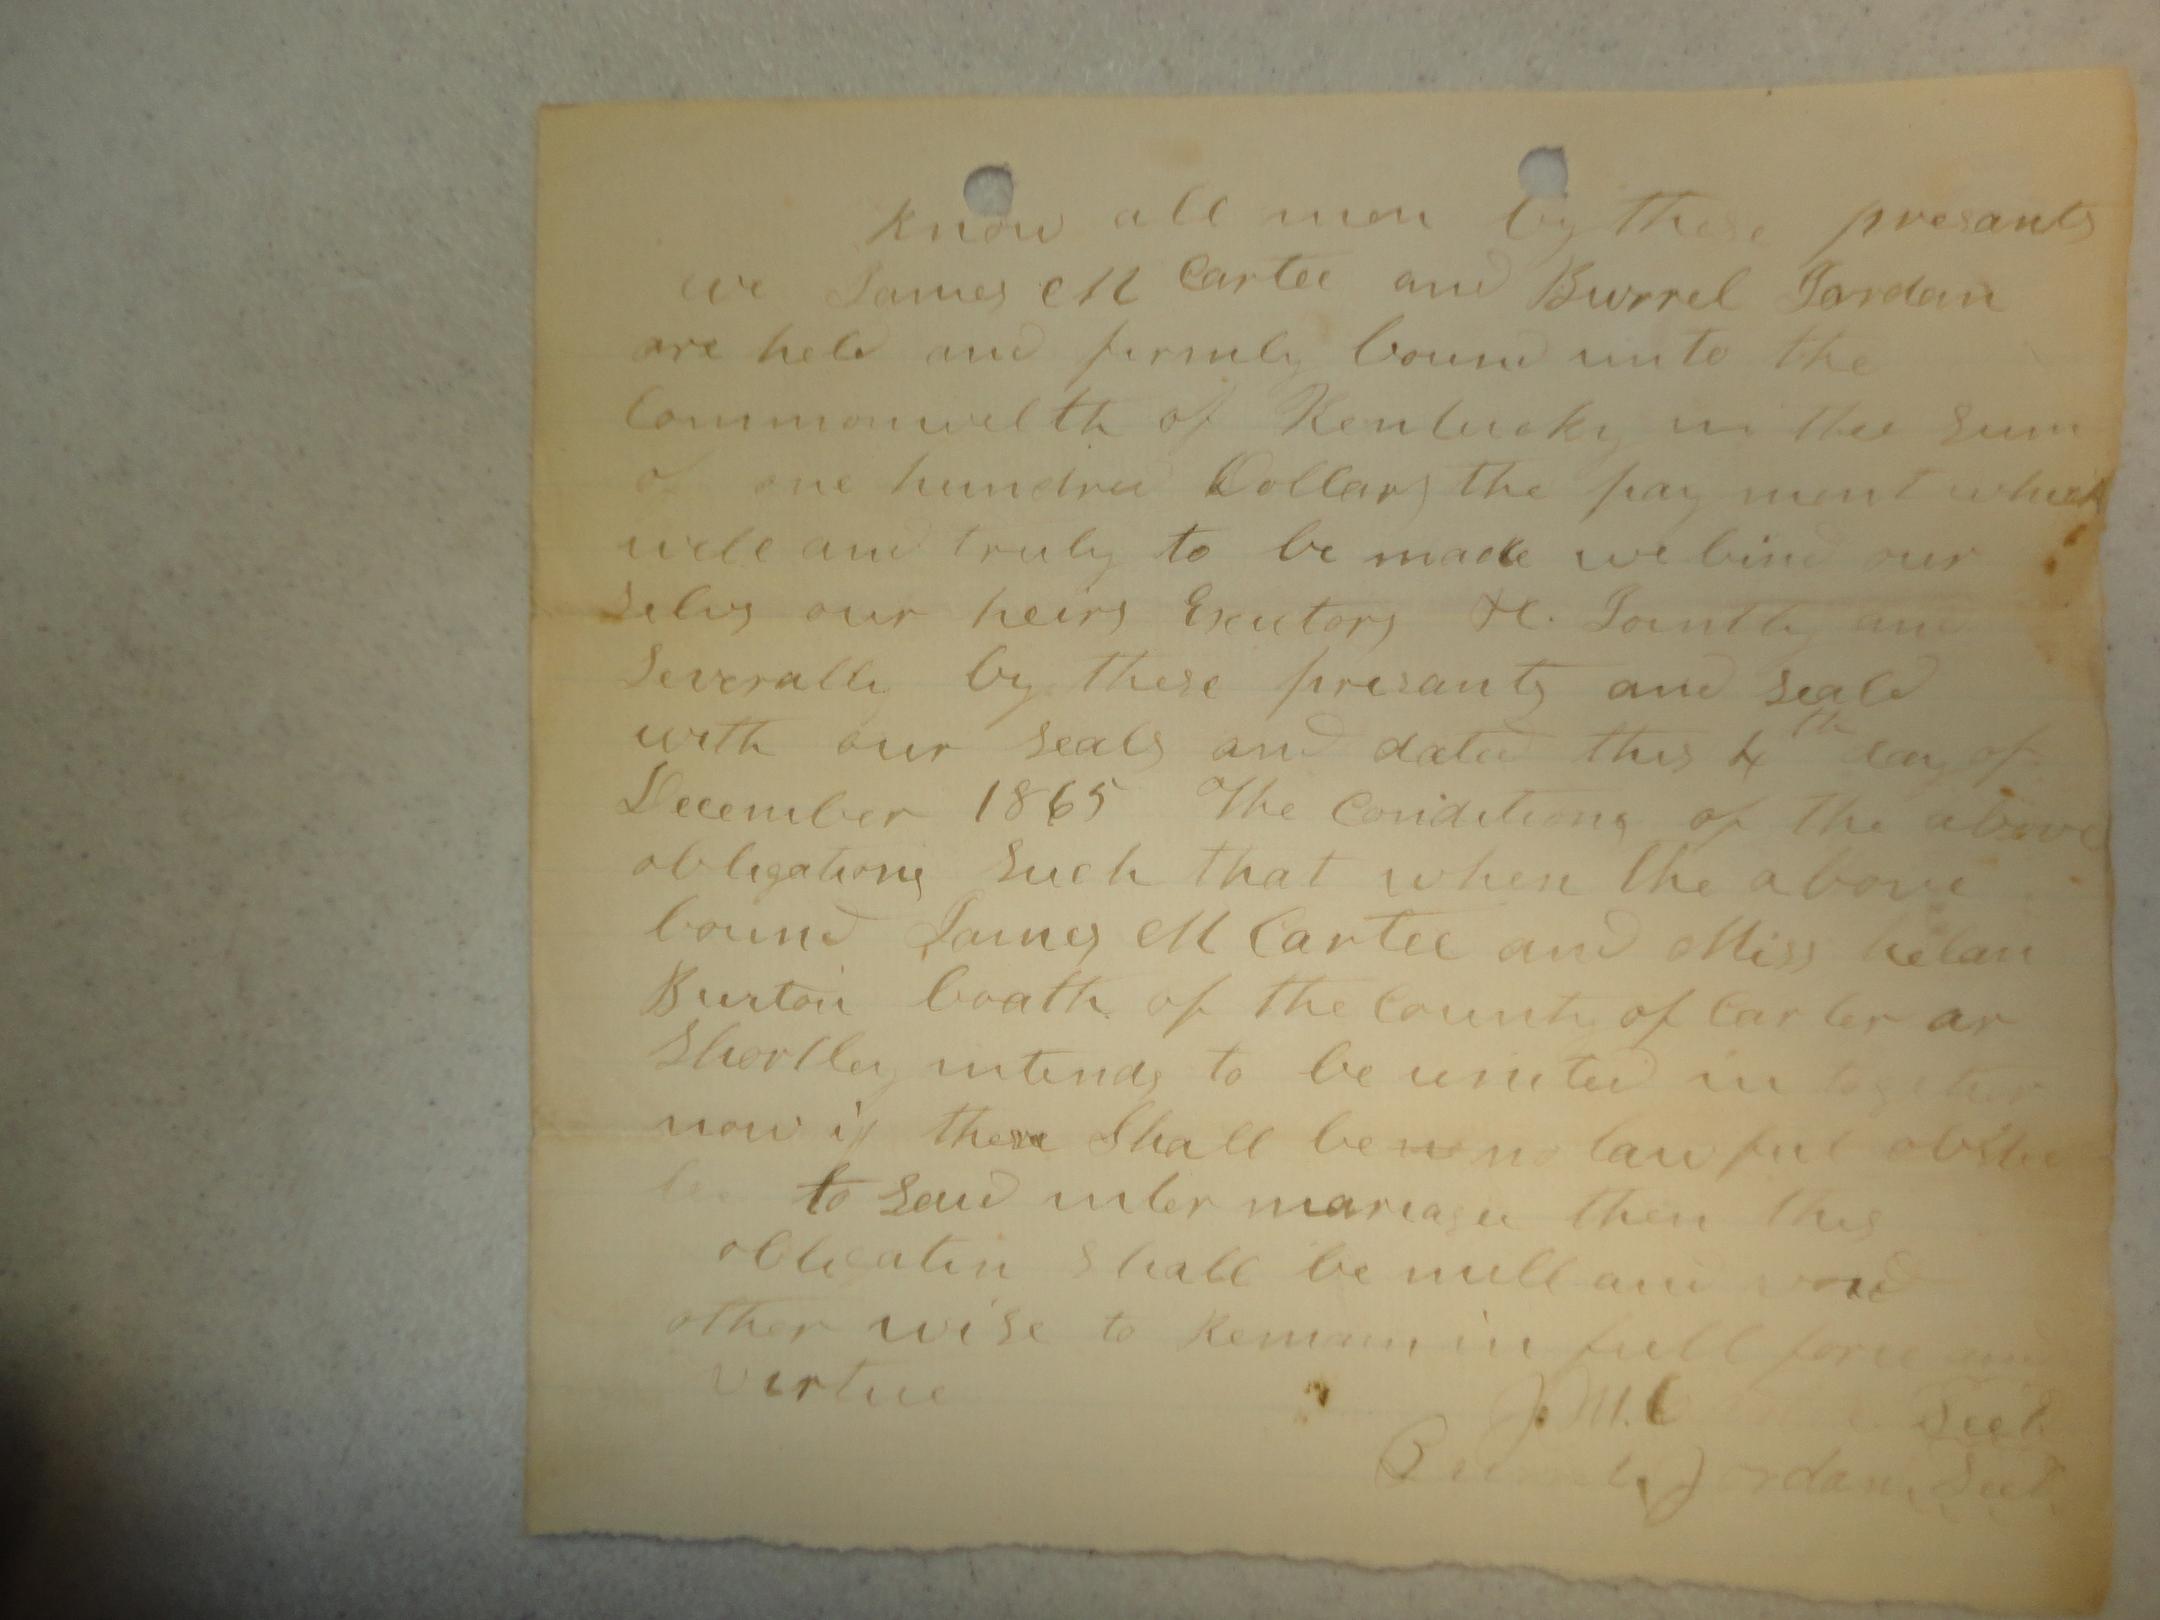 Know all men by these presants
we James M Cartee and Burrel Jordan
are held and firmly bound unto the
Commonwelth of Kentucky in thee sum
of one hundred Dollars the pay ment which
well and truly to be made we bind our
selvs our heirs Exectors &c. Jointly and
Severally by these presants and seald
with our seals and dated this 4th day of
December 1865 The Conditions of the above
obligations such that when the above
bound James M Cartee and Miss helan
Burton boath of the County of Carter ar
Shortley intends to be united in together
now if there Shall be no lawful
to said inter mariage then this
obligatin shall be null and void
other wise to Remain in full force and
virtue
J. M. C Seel
Burrel Jordan Seel